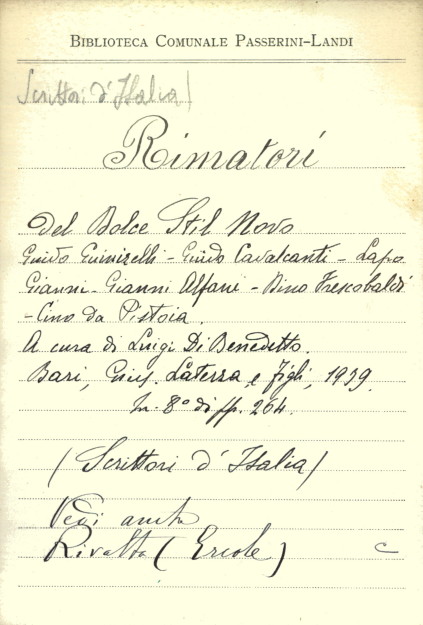 BIBLIOTECA COMUNALE PASSERINI-LANDI
Scrittori d'Italia)
Rimatori
Del Dolce Stil Novo
Guido Guinizelli - Guido Cavalcanti - Lapo
Gianni - Gianni Alfani - Dino Frescobaldi
- Cino da Pistoia.
A cura di Luigi Di Benedetto.
Bari, Gius. Laterza e figli, 1939.
In-8° di pp. 264.
(Scrittori d'Italia)
Vedi anche
Rivalta (Ercole) C